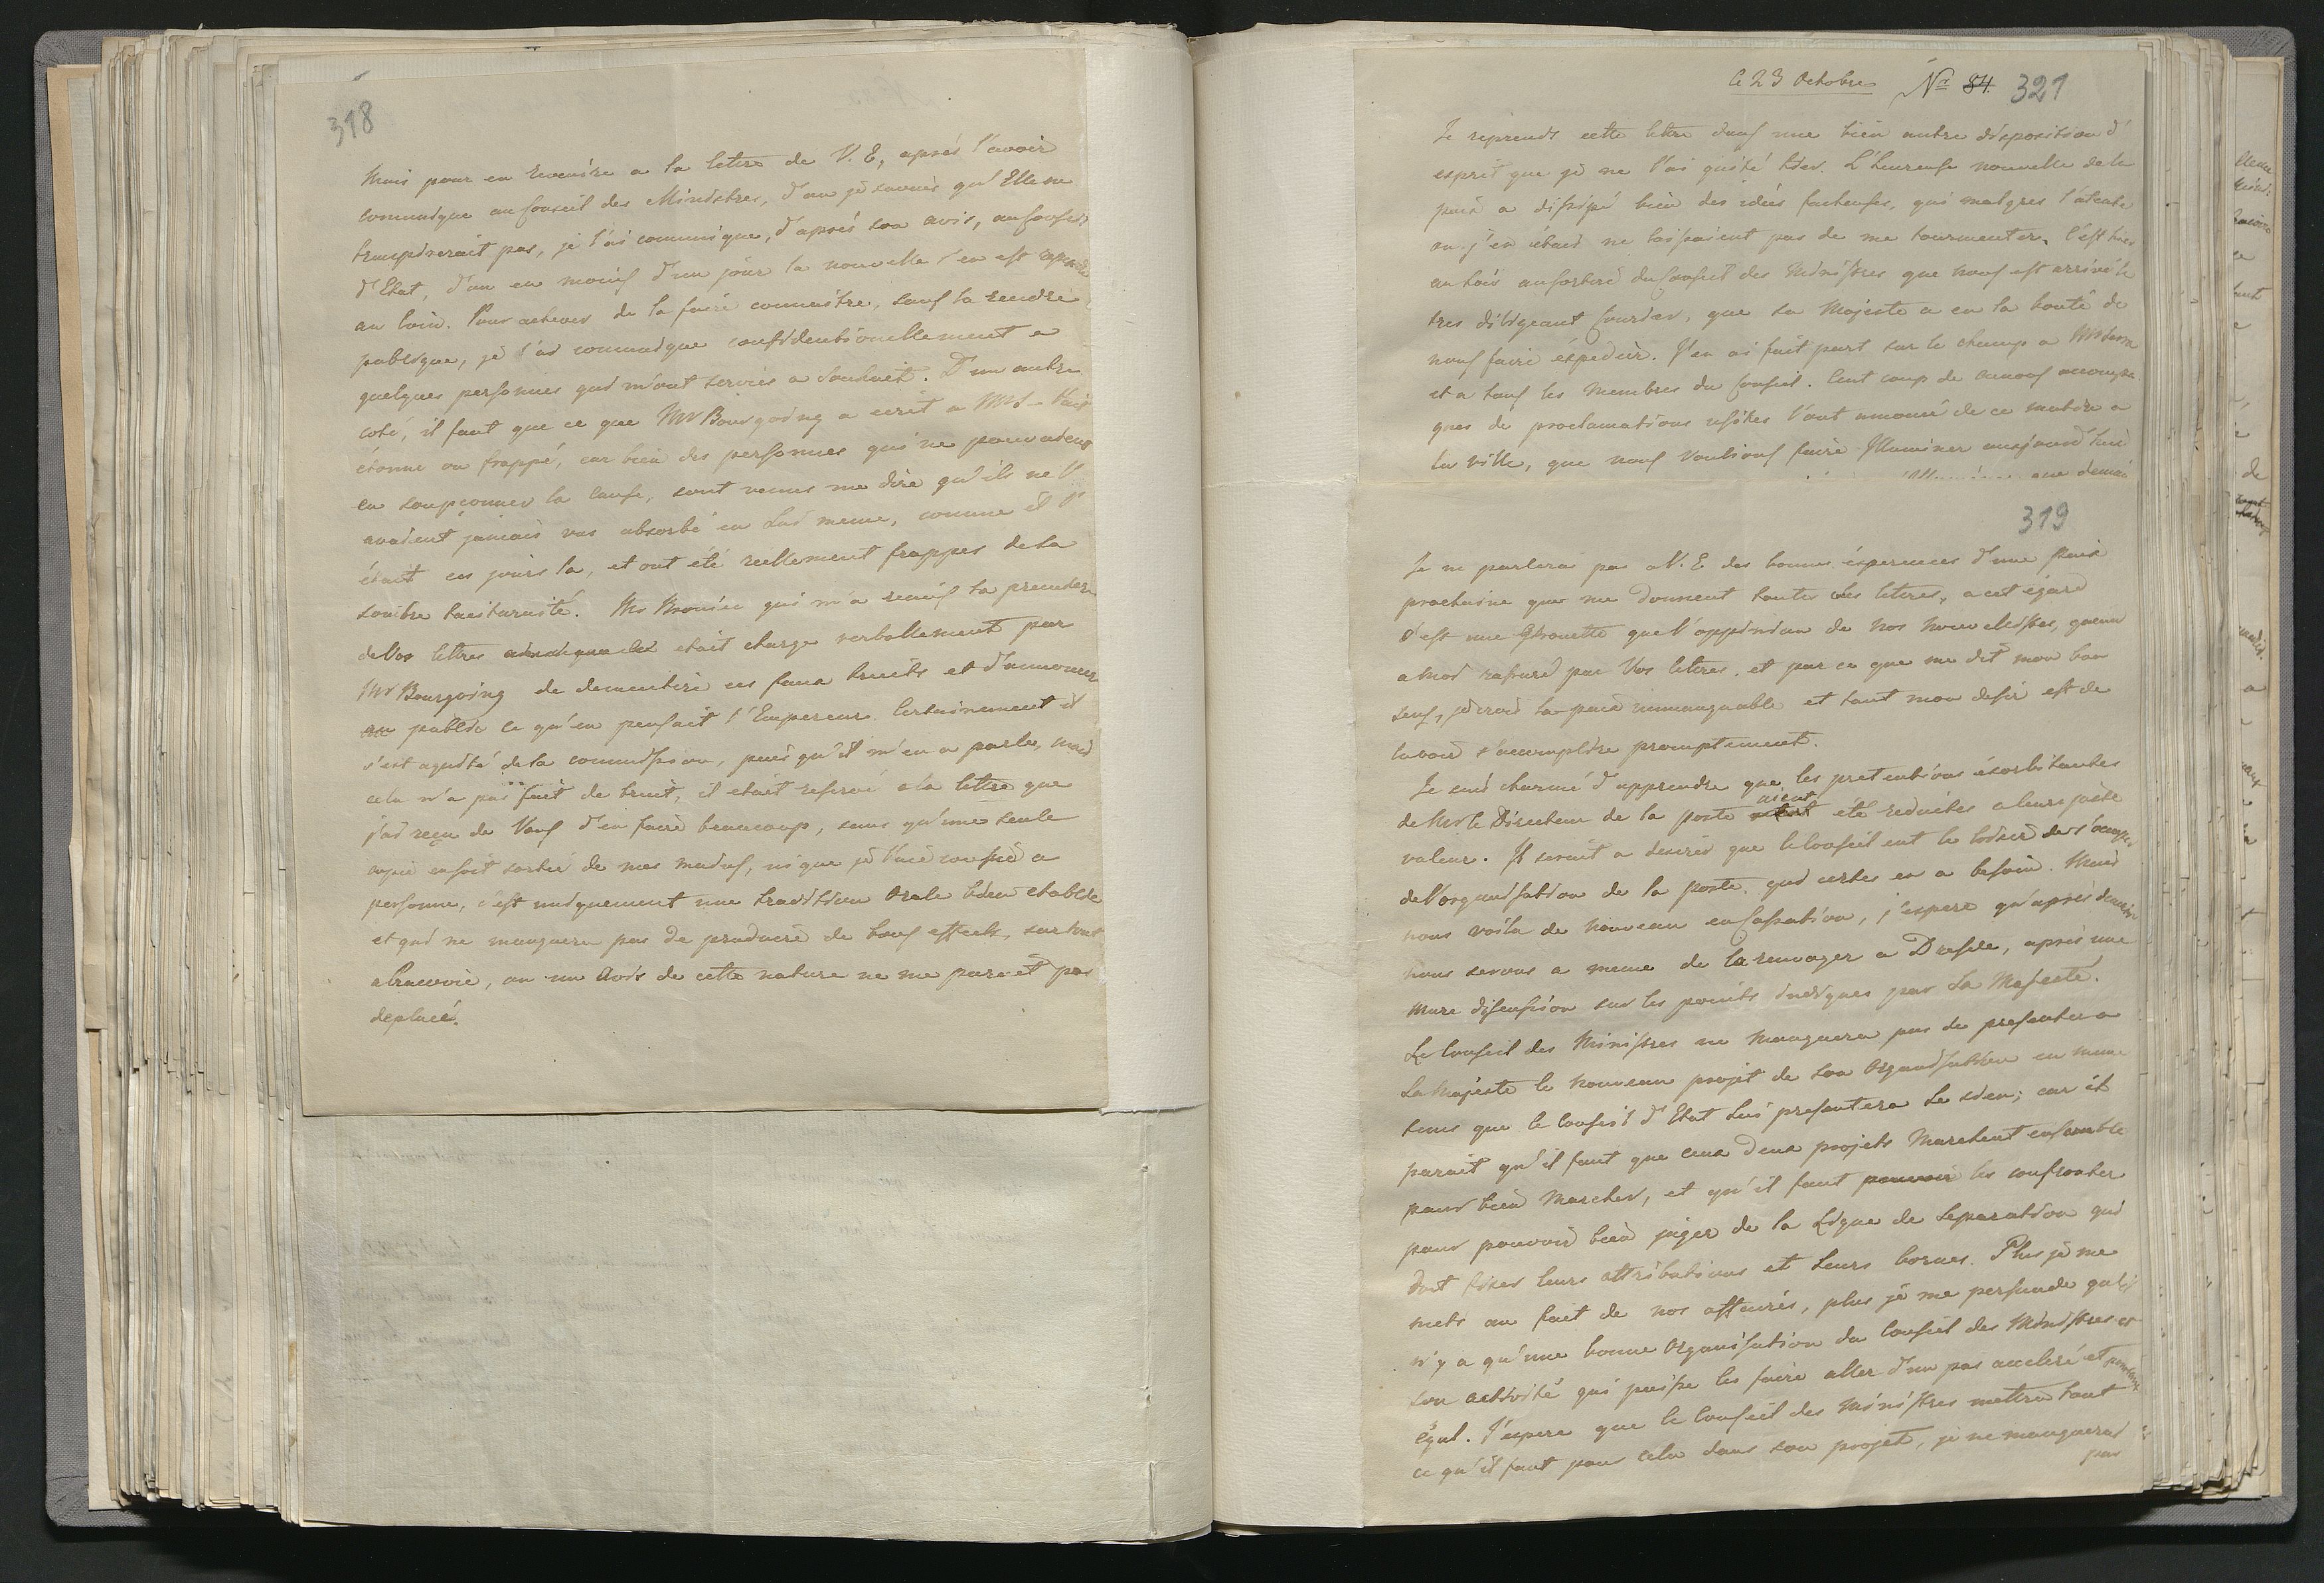 318
Mais pour en revenire a la lettre de V. E, aprés l'avoir
comunique au Conseil des Ministres, d'ou je savais qu'Elle ne
transpirerait pas, je l'ai comunique, d'aprés son avis, au Conseil
d'Etat, d'ou en moins d'un jour la nouvelle s'en est repandue
au loin. Pour achever de la faire connaitre, sans la rendre
publique, je l'ai comunique confidentionellement a
quelques personnes qui m'ont servies a souhait. D'un autre
coté, il faut que ce que Mr Bourgoing a ecrit a Mr l'ait
étonne ou frappé, car bien des personnes qui ne pouvaient
en soupconner la cause, sont venus me dire qu'ils ne l'
avaient jamais vus absorbé en lui meme, comme il l'
était ces jours la, et ont été reellement frappes de sa
sombre taciturnité. Mr qui m'a remis la premiere
de Vos lettres etait charge verballement par
Mr Bourgoing de dementire ces faux bruits et d'annoncer
au public ce qu'en pensait l'Empereur. Certainement il
s'est aquité de la commission, puis qu'il m'en a parle, mais
cela n'a pas fait de bruit, il etait reservé a la lettre que
j'ai reçu de Vous d'en faire beaucoup, sans qu'une seule
copie en soit sortie de mes mains, ni que je l'aie confié a
personne, c'est uniquement une tradition orale bien etablie
et qui ne manquera pas de produire de bons effects, surtout
a Cracovie, ou un Avis de cette nature ne me parait pas
deplacé.
le 23 Octobre Nr 84. 321
Je reprends cette lettre dans une bien autre disposition d'
esprit que je ne l'ai quité hier. L'heureuse nouvelle de la
paix a dissipé bien des idées facheuses, qui malgres l'atente
ou j'en étais ne laissaient pas de me tourmenter. C'est hier
au soir au sortire du Conseil des Ministres que nous est arrivé le
tres diligeant Courier, que Sa Majeste a eu la bonté de
nous faire éxpedier. J'en ai fait part sur le champ a
et a tous les Membres du Conseil. Cent coup de canons accompa
gnes de proclamations l'ont annoncé de ce matin a
la ville, que nous voulions faire Illuminer aujourd'hui
que demain
319
Je ne parlerai pas a V. E. des bonnes ésperences d'une paix
prochaine que me donnent toutes les lettres, a cet égard
c'est une Girouette que l'oppinion de nos nouvelistes, quant
a moi rassuré par Vos lettres, et par ce que me dit mon bon
sens, je crois la paix immanquable et tant mon desir est de
la voir s'accomplire promptement.
Je suis charmé d'apprendre que les pretentions éxorbitantes
de Mr le Directeur de la poste aient été reduites a leure juste
valeur. Il serait a desirer que le Conseil eut le loisire de s'ocuper
de l'organisation de la poste, qui certes en a besoin. Mais
nous voila de nouveau en Cassation, j'espere qu'aprés demain
nous serons a meme de la renvoyer a Dresde, aprés une
mure discussion sur les points indiques par Sa Majeste.
Le Conseil des Ministres ne manquera pas de presenter a
Sa Majeste le nouveau projet de son Organisation en meme
tems que le Conseil d'Etat Lui presentera le sien; car il
parait qu'il faut que ceux deux projets marchent ensemble
pour bien marcher, et qu'il faut pouvoir les confronter
pour pouvoir bien juger de la Ligne de separation qui
doit fixer leurs attributions et leurs bornes. Plus je me
mets au fait de nos affaires, plus je me persuade qu'il
n'y a qu'une bonne Organisation du Conseil des Ministres et
son activité qui puisse les faire aller d'un pas acceleré et
égal. J'espere que le Conseil des Ministres mettra tout
ce qu'il faut pour cela dans son projet, je ne manquerai
pas